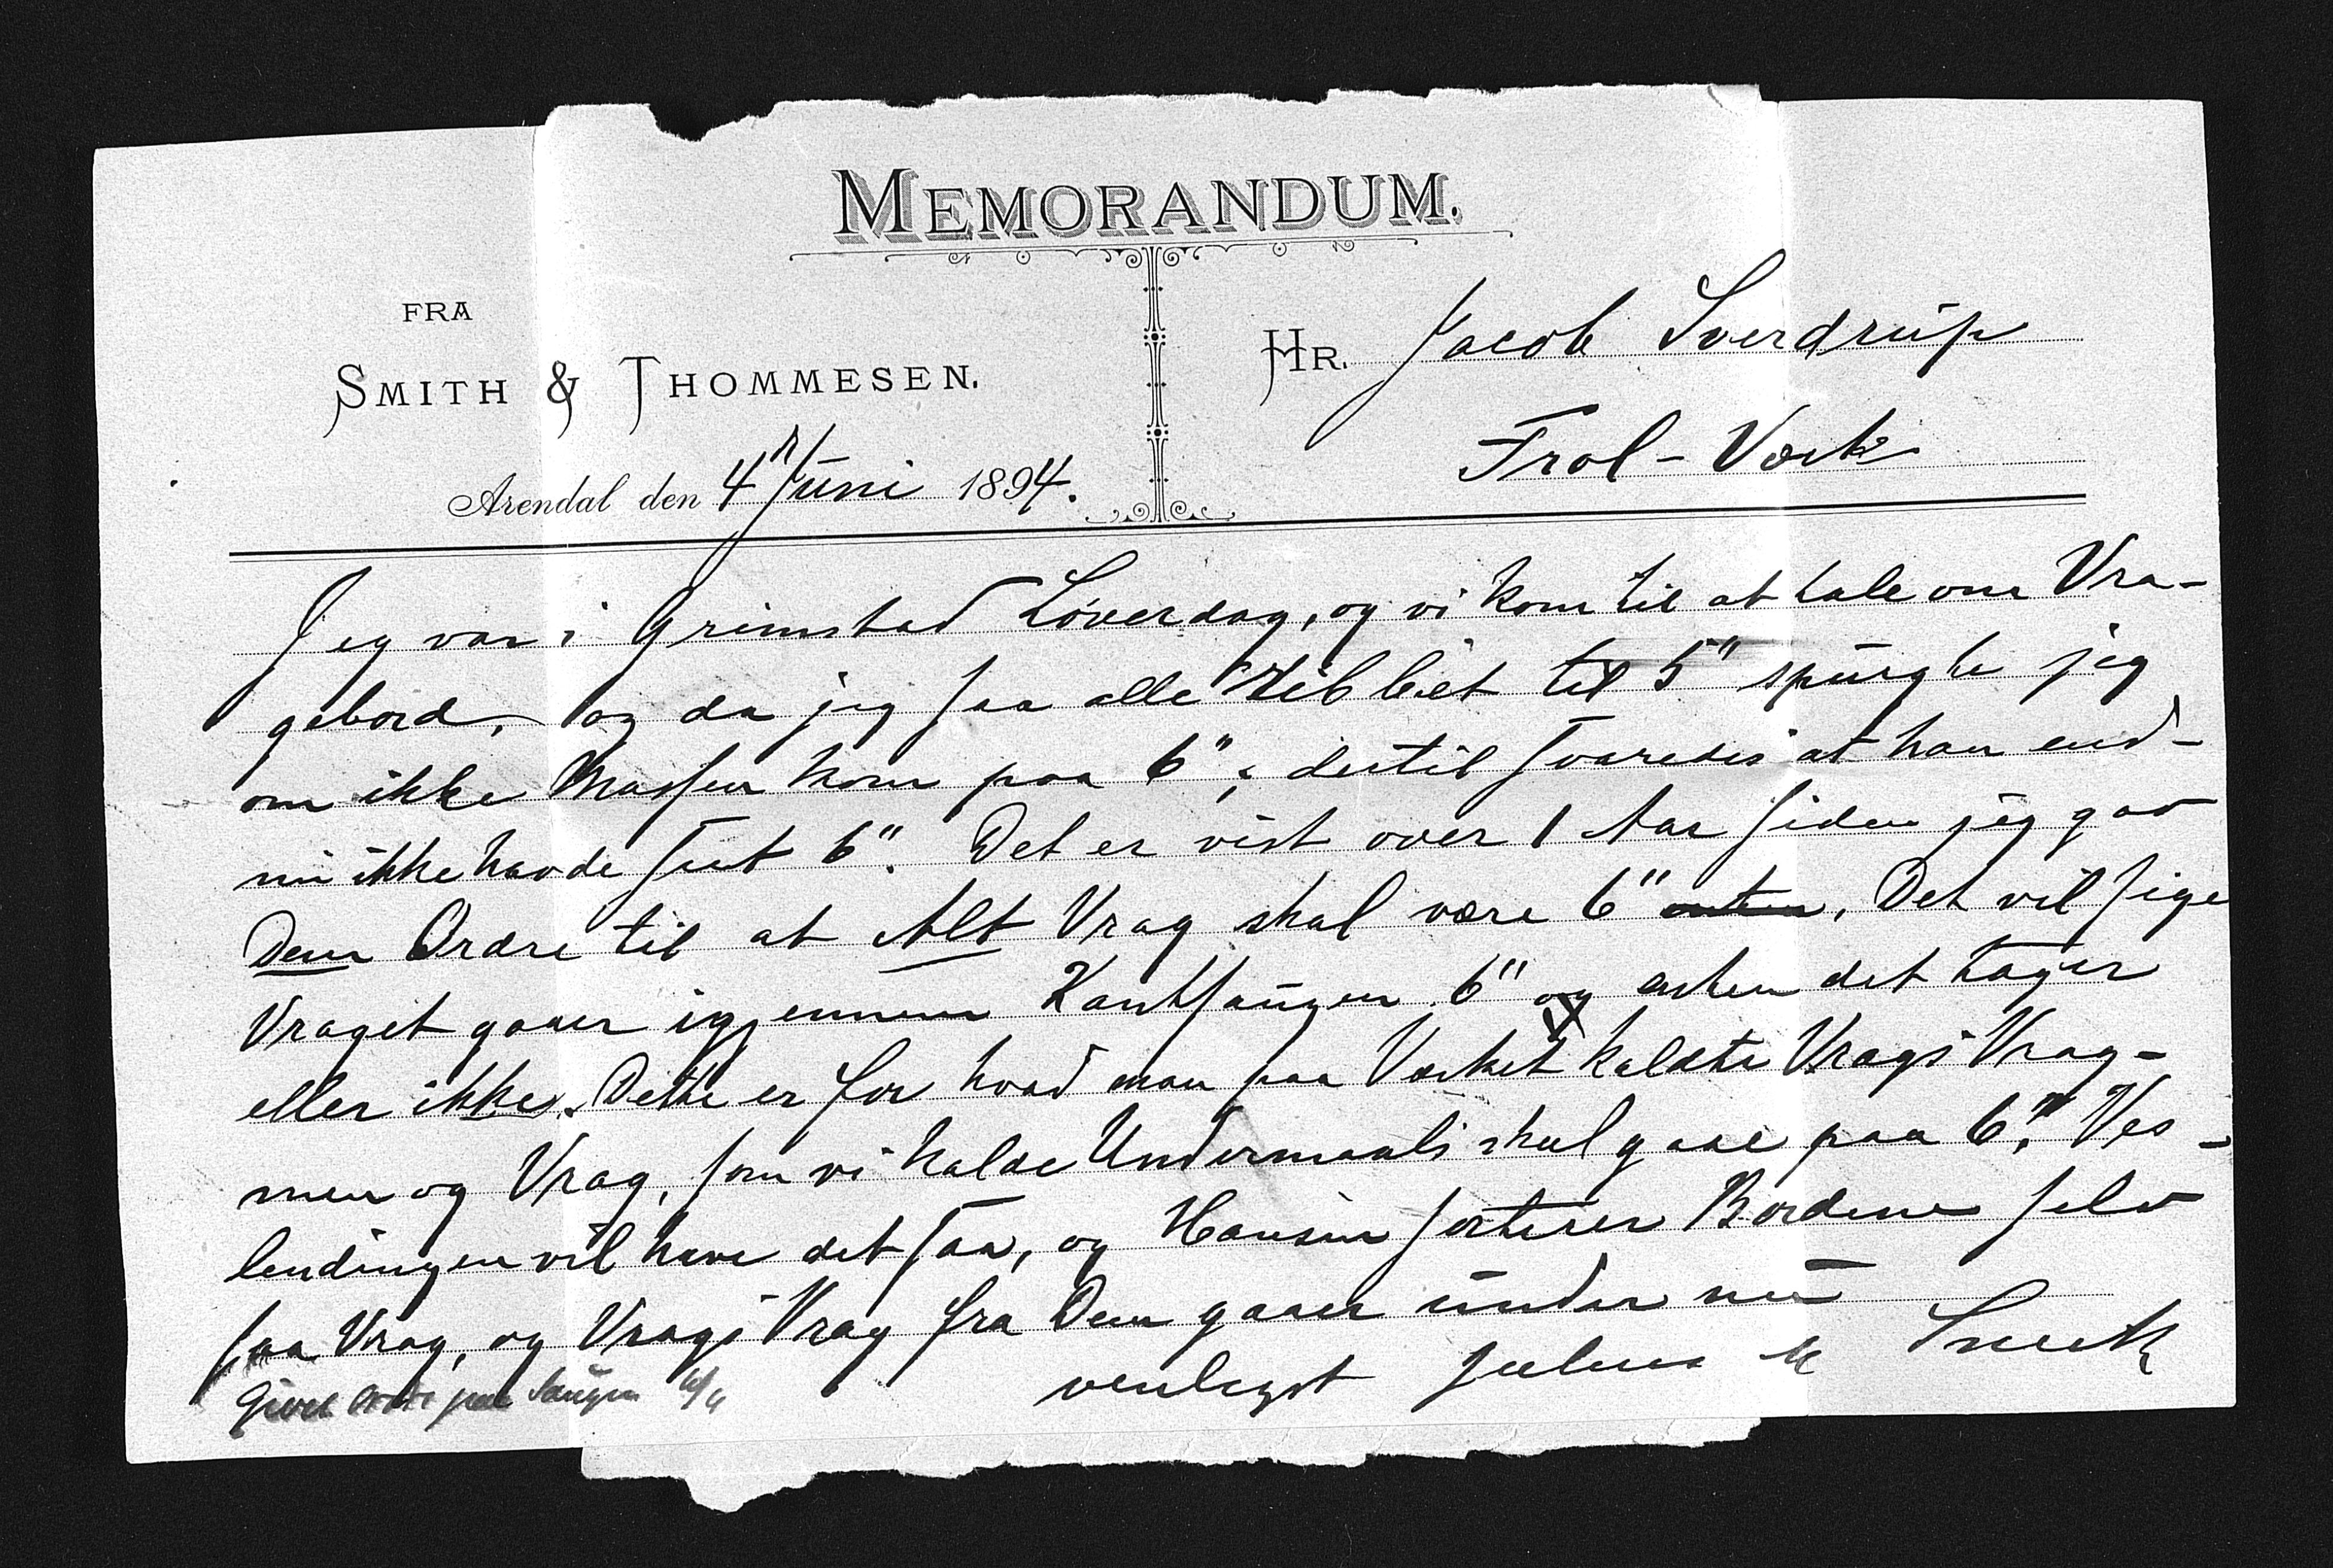 MEMORANDUM.
FRA
SMITH & THOMMESEN.
HR. Jacob Sverdrup
Frol-Værk
Arendal den 4 Juni 1894.
Jeg var i Grimstad Løverdag, og vi kom til at tale om Vra-
gebord, og da jeg saa alle til 5" spurgte jeg
om ikke Massen kom paa 6"; dertil svaredes at han end-
nu ikke havde seet 6". Det er vist over 1 Aar siden jeg gav
Dem Ordre til at Alt Vrag skal være 6" enten. Det vil sige
Vraget gaaer igjennem Kantsaugen 6" og enten det tager
eller ikke. Dette er for hvad man paa Værket kaldte Vrags Vrag-
men og Vrag, som vi kalde Undermaals skal gaae paa 6". Ves-
lendingen vil have det saa, og Hansen sorterer Bordene selv
saa Vrag, og Vrags Vrag fra Dem gaaer under nu
venligst Julius Smith
Givet Ordre paa Saugen